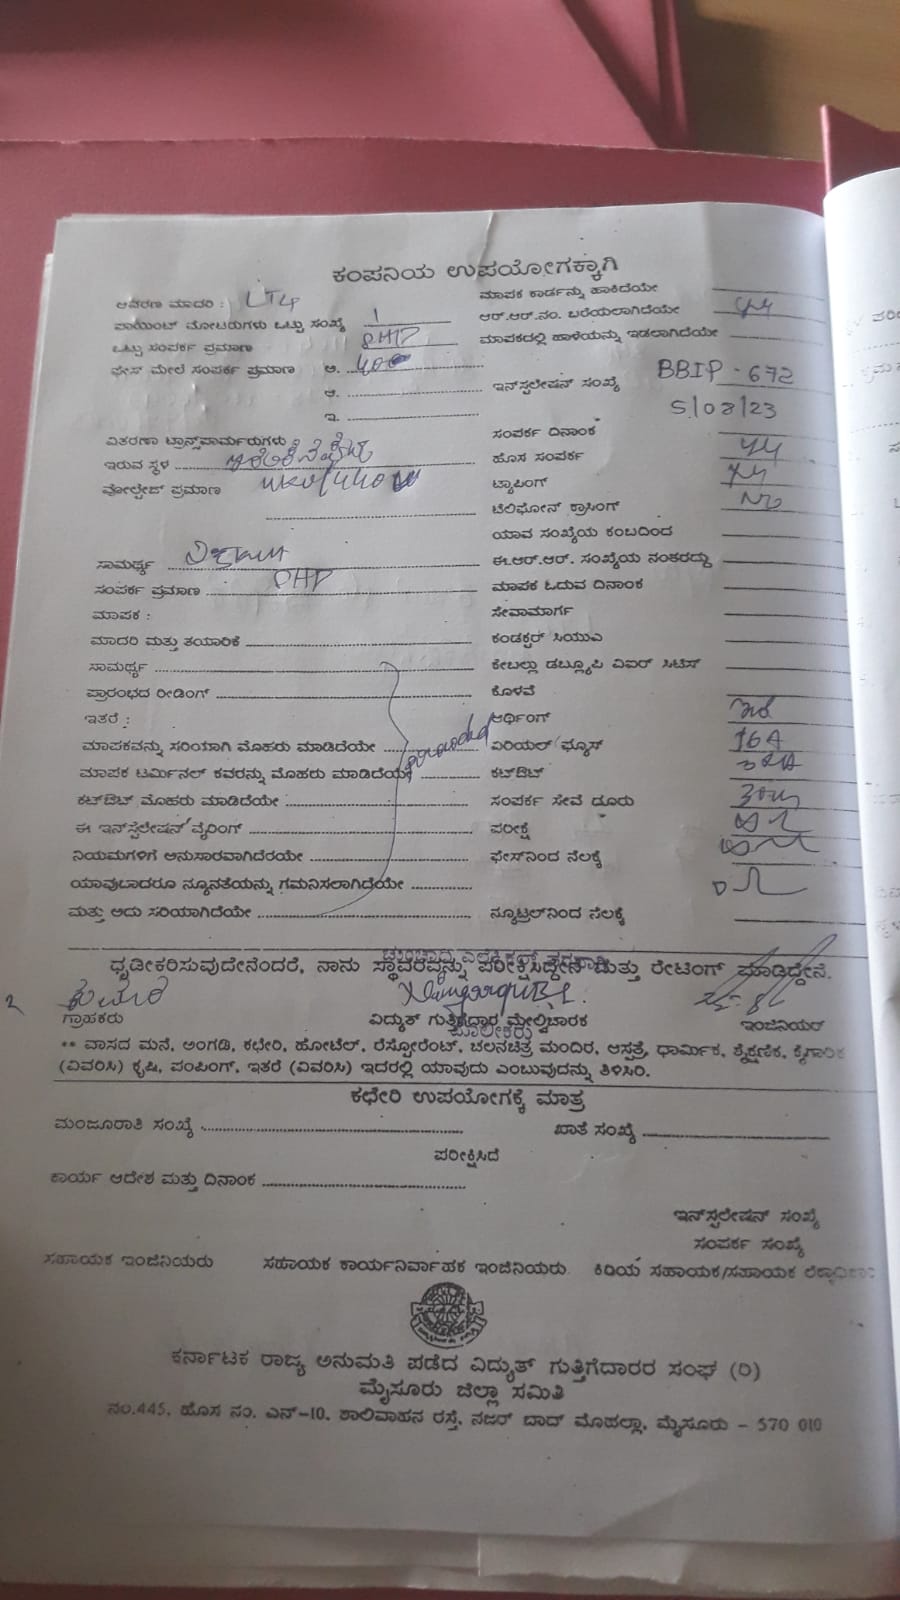 ಕಂಪನಿಯ ಉಪಯೋಗಕ್ಕಾಗಿ
ಆವರಣ ಮಾದರಿ : LT4
ಮಾಪಕ ಕಾರ್ಡನ್ನು ಹಾಕಿದೆಯೇ
ಪಾಯಿಂಟ್ ಮೋಟರುಗಳು ಒಟ್ಟು ಸಂಖ್ಯೆ 1
ಆರ್.ಆರ್.ನಂ. ಬರೆಯಲಾಗಿದೆಯೇ
ಒಟ್ಟು ಸಂಪರ್ಕ ಪ್ರಮಾಣ
ಮಾಪಕದಲ್ಲಿ ಹಾಳೆಯನ್ನು ಇಡಲಾಗಿದೆಯೇ
ಫೇಸ್ ಮೇಲೆ ಸಂಪರ್ಕ ಪ್ರಮಾಣ ಅ. 400
ಇನ್‌ಸ್ಟಲೇಷನ್ ಸಂಖ್ಯೆ BBIP - 672
ಆ.
ಇ.
5/08/23
ಸಂಪರ್ಕ ದಿನಾಂಕ
ವಿತರಣಾ ಟ್ರಾನ್ಸ್‌ಪಾರ್ಮರುಗಳು
ಇರುವ ಸ್ಥಳ
ಹೊಸ ಸಂಪರ್ಕ
ವೋಲ್ಟೇಜ್ ಪ್ರಮಾಣ
ಟ್ಯಾಪಿಂಗ್
ಟೆಲಿಫೋನ್ ಕ್ರಾಸಿಂಗ್ No
ಯಾವ ಸಂಖ್ಯೆಯ ಕಂಬದಿಂದ
ಸಾಮರ್ಥ್ಯ
ಈ.ಆರ್.ಆರ್. ಸಂಖ್ಯೆಯ ನಂತರದ್ದು
ಸಂಪರ್ಕ ಪ್ರಮಾಣ
ಮಾಪಕ ಓದುವ ದಿನಾಂಕ
ಮಾಪಕ :
ಸೇವಾಮಾರ್ಗ
ಮಾದರಿ ಮತ್ತು ತಯಾರಿಕೆ
ಕಂಡಕ್ಟರ್ ಸಿಯುಎ
ಸಾಮರ್ಥ್ಯ
ಕೇಬಲ್ಲು ಡಬ್ಲ್ಯೂಪಿ ವಿಐರ್ ಸಿಟಿಸ್
ಪ್ರಾರಂಭದ ರೀಡಿಂಗ್
ಕೊಳವೆ
ಇತರೆ :
ಆರ್ಥಿಂಗ್
ಮಾಪಕವನ್ನು ಸರಿಯಾಗಿ ಮೊಹರು ಮಾಡಿದೆಯೇ
ಏರಿಯಲ್ ಫ್ಯೂಸ್ 16A
ಮಾಪಕ ಟರ್ಮಿನಲ್ ಕವರನ್ನು ಮೊಹರು ಮಾಡಿದೆಯೇ
ಕಟ್‌ಔಟ್
ಕಟ್‌ಔಟ್ ಮೊಹರು ಮಾಡಿದೆಯೇ
ಸಂಪರ್ಕ ಸೇವೆ ದೂರು
ಈ ಇನ್‌ಸ್ಟಲೇಷನ್ ವೈರಿಂಗ್
ಪರೀಕ್ಷೆ
ನಿಯಮಗಳಿಗೆ ಅನುಸಾರವಾಗಿದೆರಯೇ
ಫೇಸ್‌ನಿಂದ ನೆಲಕ್ಕೆ
ಯಾವುದಾದರೂ ನ್ಯೂನತೆಯನ್ನು ಗಮನಿಸಲಾಗಿದೆಯೇ
ಮತ್ತು ಅದು ಸರಿಯಾಗಿದೆಯೇ
ನ್ಯೂಟ್ರಲ್‌ನಿಂದ ನೆಲಕ್ಕೆ
ಧೃಡೀಕರಿಸುವುದೇನೆಂದರೆ, ನಾನು ಸ್ಥಾವರವನ್ನು ಪರೀಕ್ಷಿಸಿದ್ದೇನೆ ಮತ್ತು ರೇಟಿಂಗ್ ಮಾಡಿದ್ದೇನೆ.
ಗ್ರಾಹಕರು
ವಿದ್ಯುತ್ ಗುತ್ತಿಗೆದಾರ ಮೇಲ್ವಿಚಾರಕ
ಇಂಜಿನಿಯರ್
ಮಾಲೀಕರು
** ವಾಸದ ಮನೆ, ಅಂಗಡಿ, ಕಛೇರಿ, ಹೋಟೆಲ್, ರೆಸ್ಟೋರೆಂಟ್, ಚಲನಚಿತ್ರ ಮಂದಿರ, ಆಸ್ಪತ್ರೆ, ಧಾರ್ಮಿಕ, ಶೈಕ್ಷಣಿಕ, ಕೈಗಾರಿಕ
(ವಿವರಿಸಿ) ಕೃಷಿ, ಪಂಪಿಂಗ್, ಇತರೆ (ವಿವರಿಸಿ) ಇದರಲ್ಲಿ ಯಾವುದು ಎಂಬುವುದನ್ನು ತಿಳಿಸಿರಿ.
ಕಛೇರಿ ಉಪಯೋಗಕ್ಕೆ ಮಾತ್ರ
ಮಂಜೂರಾತಿ ಸಂಖ್ಯೆ
ಖಾತೆ ಸಂಖ್ಯೆ
ಪರೀಕ್ಷಿಸಿದೆ
ಕಾರ್ಯ ಆದೇಶ ಮತ್ತು ದಿನಾಂಕ
ಇನ್‌ಸ್ಟಲೇಷನ್ ಸಂಖ್ಯೆ
ಸಂಪರ್ಕ ಸಂಖ್ಯೆ
ಸಹಾಯಕ ಇಂಜಿನಿಯರು ಸಹಾಯಕ ಕಾರ್ಯನಿರ್ವಾಹಕ ಇಂಜಿನಿಯರು ಕಿರಿಯ ಸಹಾಯಕ/ಸಹಾಯಕ
ಕರ್ನಾಟಕ ರಾಜ್ಯ ಅನುಮತಿ ಪಡೆದ ವಿದ್ಯುತ್ ಗುತ್ತಿಗೆದಾರರ ಸಂಘ (ರಿ)
ಮೈಸೂರು ಜಿಲ್ಲಾ ಸಮಿತಿ
ನಂ.445, ಹೊಸ ನಂ. ಎನ್-10, ಶಾಲಿವಾಹನ ರಸ್ತೆ, ನಜರ್ ಬಾದ್ ಮೊಹಲ್ಲಾ, ಮೈಸೂರು - 570 010